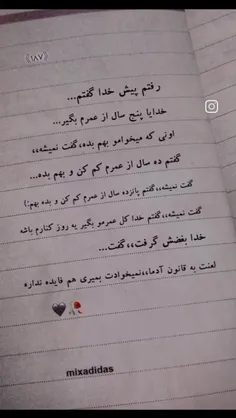 《۱۸۷》
رفتم پیش خدا گفتم...
خدایا پنج سال از عمرم بگیر...
اونی که میخوامو بهم بده،گفت نمیشه،،
گفتم ده سال از عمرم کم کن و بهم بده...
گفت نمیشه،،گفتم پانزده سال از عمرم کم کن و بده بهم:)
گفت نمیشه،،گفتم خدا کل عمرمو بگیر یه روز کنارم باشه
خدا بغضش گرفت،،گفت...
لعنت به قانون آدما،،نمیخوادت بمیری هم فایده نداره
🖤🥀
mixadidas